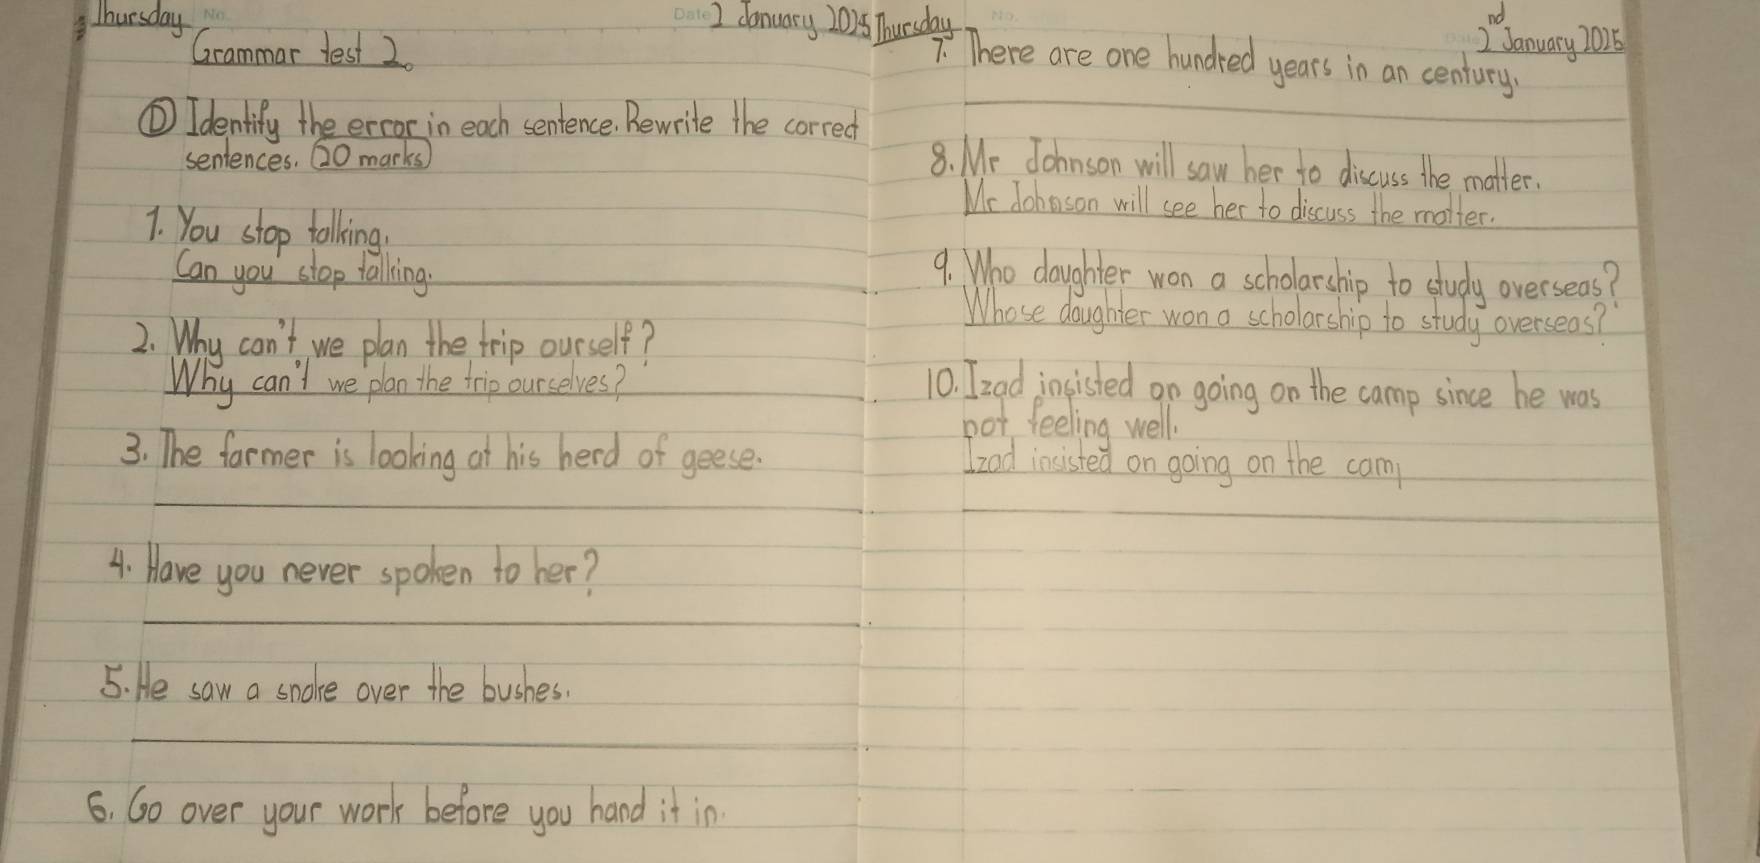 Thursday No. Date 2 January 2025
Grammar test 2.
D Identify the error in each sentence. Rewrite the correct
sentences. 20 marks
1. You stop talking.
Can you stop talking.
2. Why can't we plan the trip ourself?
Why can't we plan the trip ourselves?
3. The farmer is looking at his herd of geese.
4. Have you never spoken to her?
5. He saw a snake over the bushes.
6. Go over your work before you hand it in.
Thursday No. 2nd January 2025
7. There are one hundred years in an century.
8. Mr Johnson will saw her to discuss the matter.
Mr Johnson will see her to discuss the matter.
9. Who daughter won a scholarship to study overseas?
Whose daughter won a scholarship to study overseas?
10. Izad insisted on going on the camp since he was
not feeling well.
Izad insisted on going on the cam